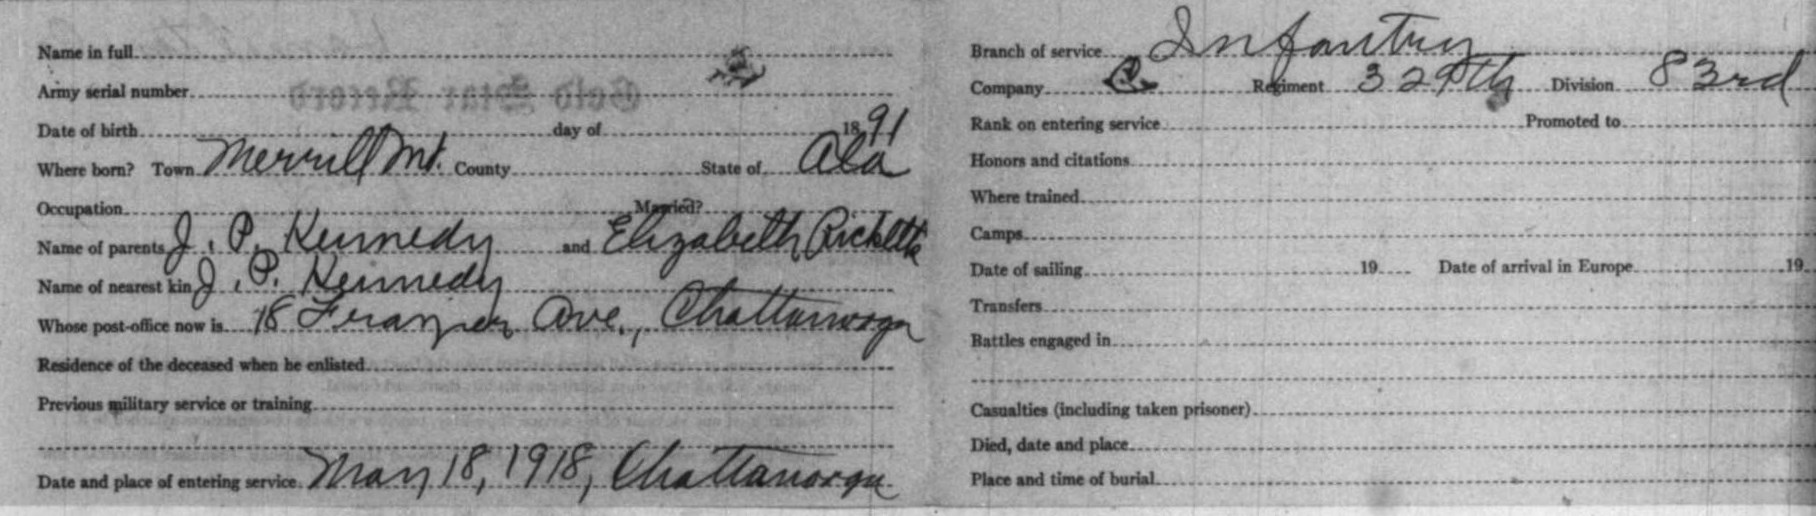 Name in full
Army serial number
Date of birth day of 1891
Where born? Town Merrill Mt. County State of Ala
Occupation Married?
Name of parents J. P. Kennedy and Elizabeth Ricketts
Name of nearest kin J. P. Kennedy
Whose post-office now is 18 Frazier Ave., Chattanooga
Residence of the deceased when he enlisted
Previous military service or training
Date and place of entering service May 18, 1918, Chattanooga
Branch of service Infantry
Company Regiment 329th Division 83rd
Rank on entering service Promoted to
Honors and citations
Where trained
Camps
Date of sailing 19 Date of arrival in Europe 19
Transfers
Battles engaged in
Casualties (including taken prisoner)
Died, date and place
Place and time of burial